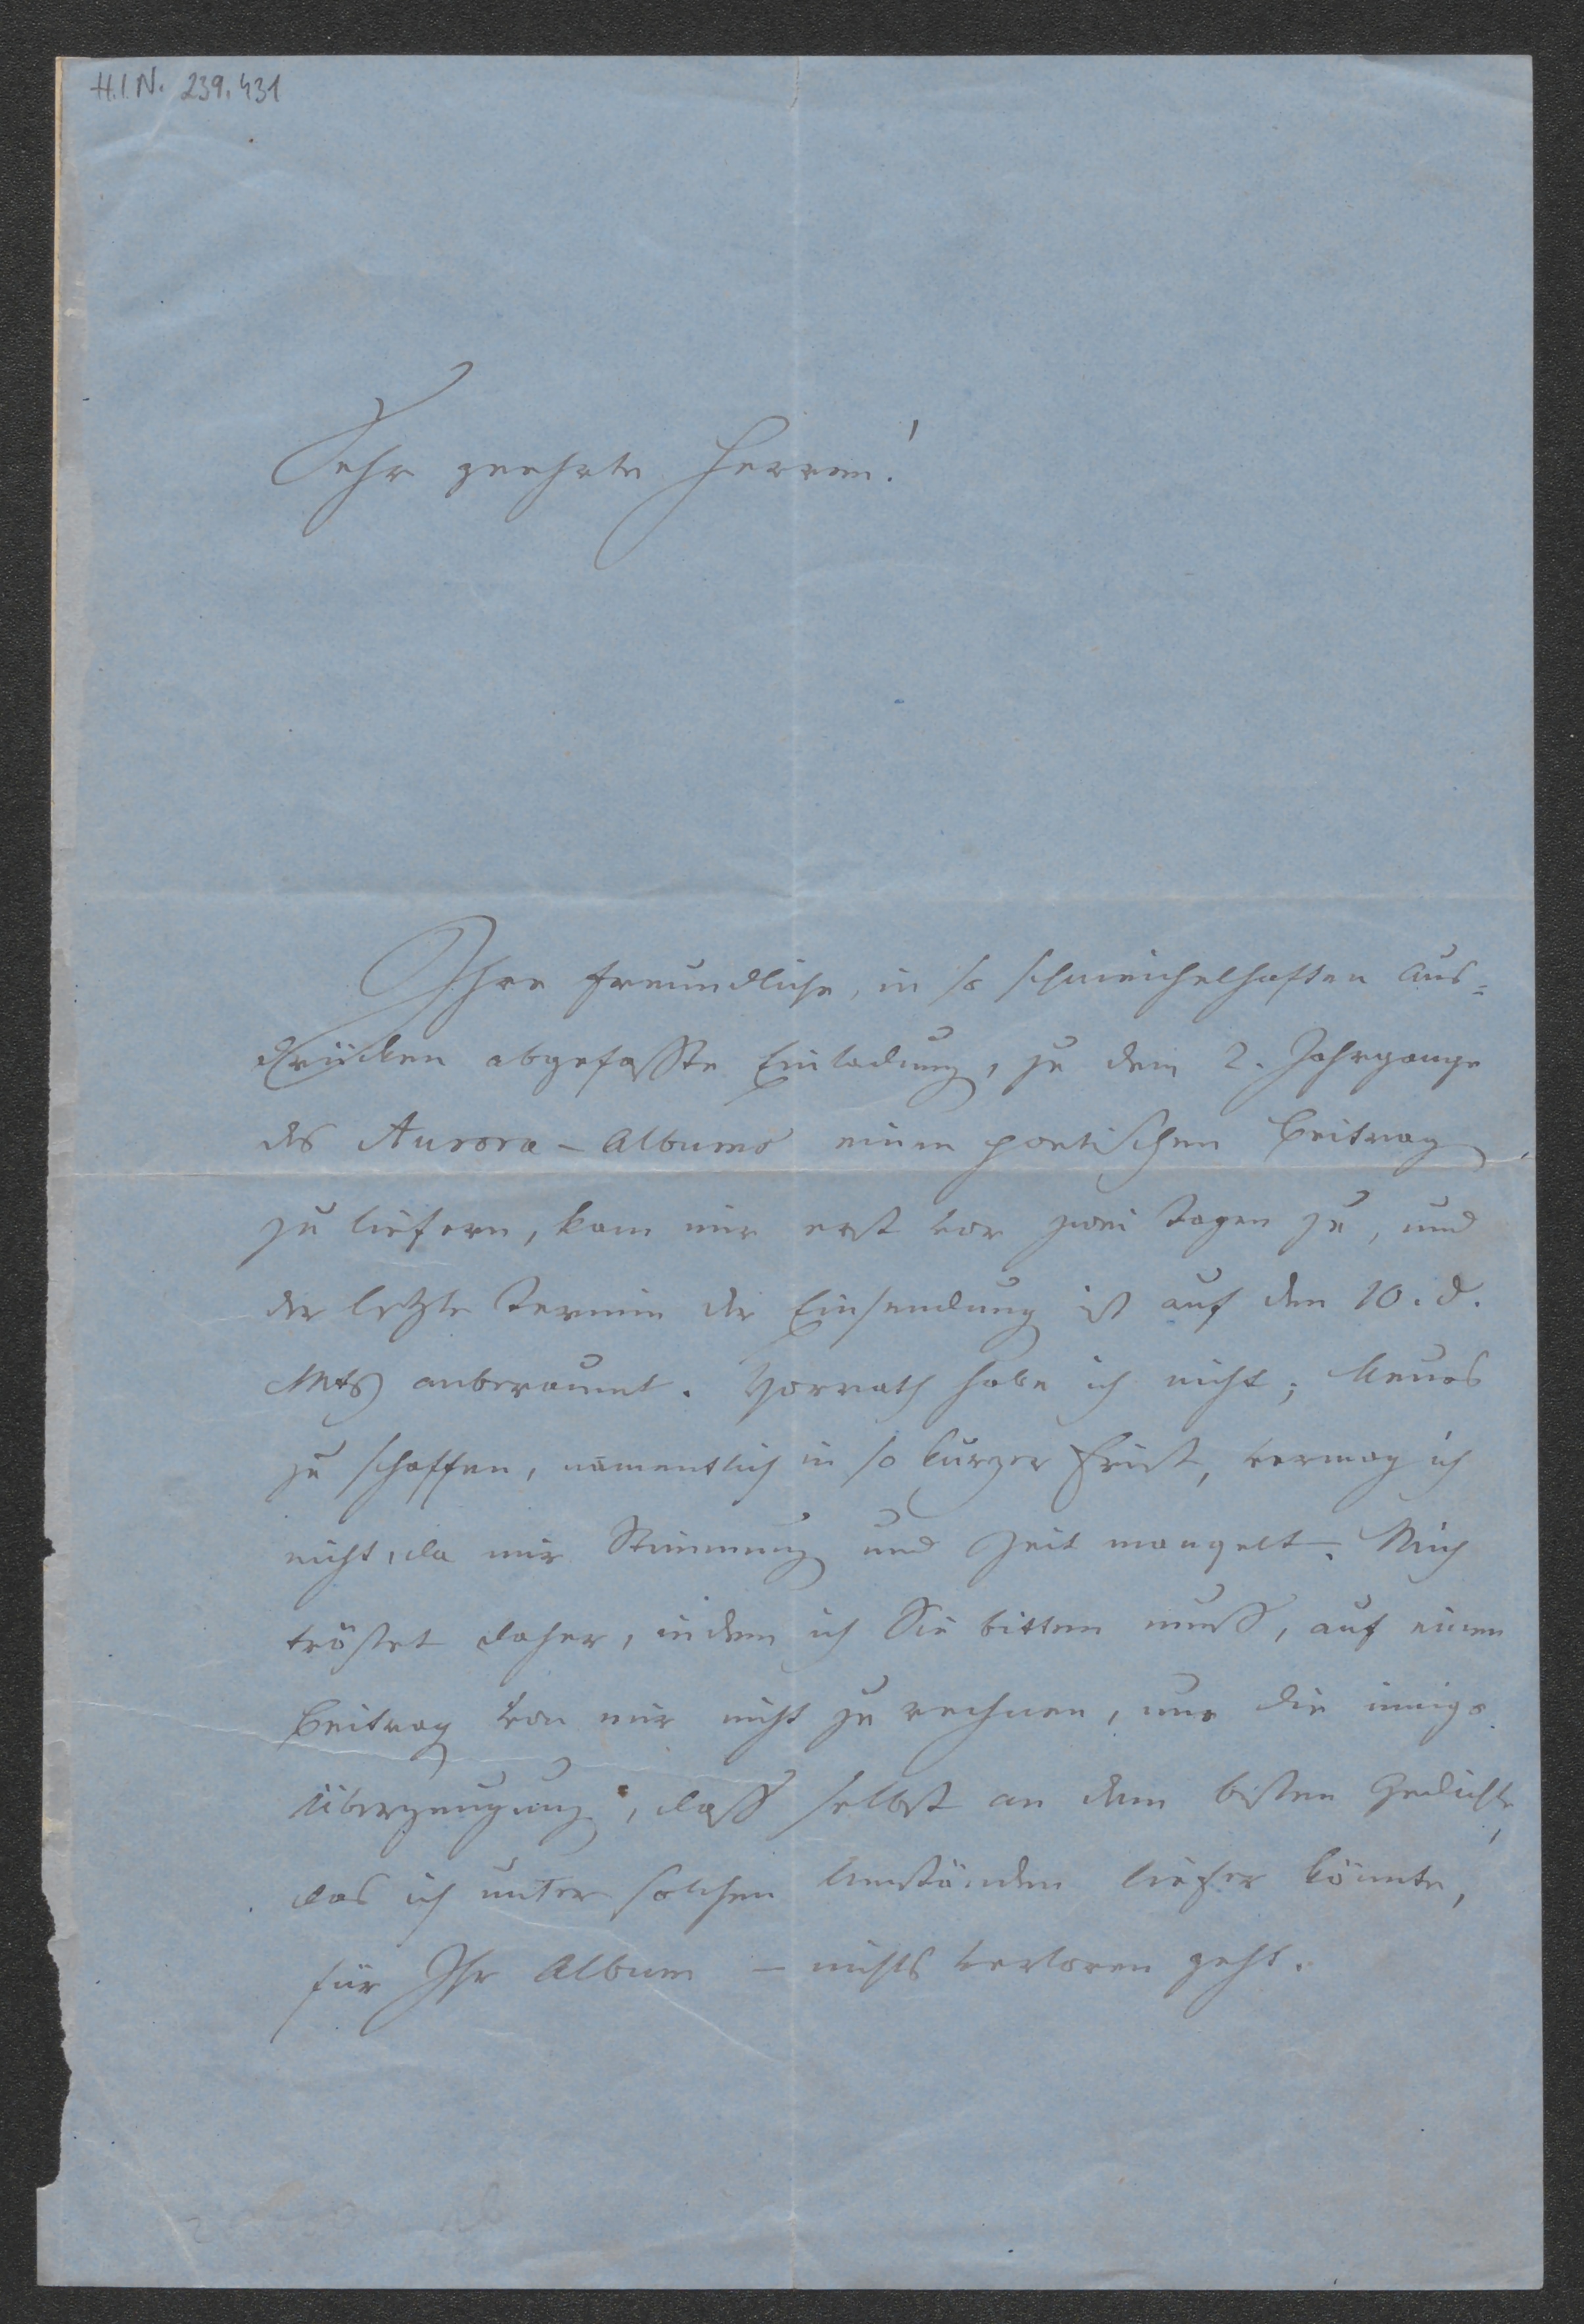 H.I.N. 239.431
Sehr geehrte Herren!
Ihre freundliche, in so schmeichelhaften Aus=
drücken abgefaßte Einladung, zu dem 2. Jahrgange
des Aurora-Albums einen poetischen Beitrag
zu liefern, kam mir erst vor zwei Tagen zu, und
der letzte Termin der Einsendung ist auf den 10. d.
Mts anberaumt. Vorrath habe ich nicht; Neues
zu schaffen, namentlich in so kurzer Frist, vermag ich
nicht, da mir Stimmung und Zeit mangelt. Mich
tröstet daher, indem ich Sie bitten muß, auf einen
Beitrag von mir nicht zu rechnen, nur die innige
Überzeugung, daß selbst an dem besten Gedichte,
das ich unter solchen Umständen liefer könnte,
für Ihr Album – nichts verloren geht.